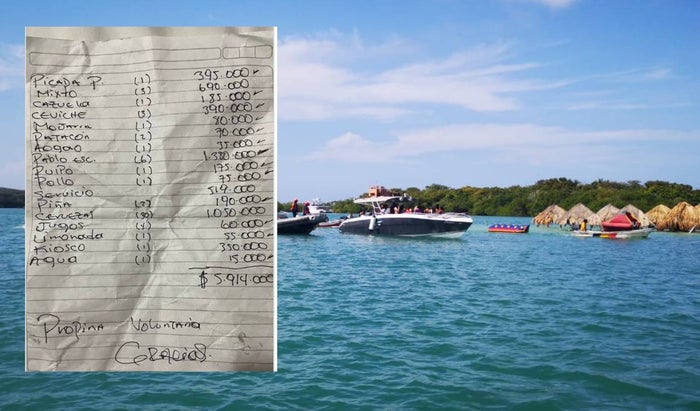 Picada P. (1) 395.000
Mixto (3) 690.000
Cazuela (1) 185.000
Ceviche (3) 390.000
Mojarra (1) 80.000
Patacon (2) 70.000
(1) 35.000
Pablo esc. (6) 1.380.000
Pulpo (1) 175.000
Pollo (1) 75.000
Servicio 514.000
Piña (2) 190.000
Cervezas (30) 1.050.000
Jugos (4) 60.000
Limonada (1) 55.000
Kiosco (1) 350.000
Agua (1) 15.000
$ 5.914.000
Propina Voluntaria
Gracias